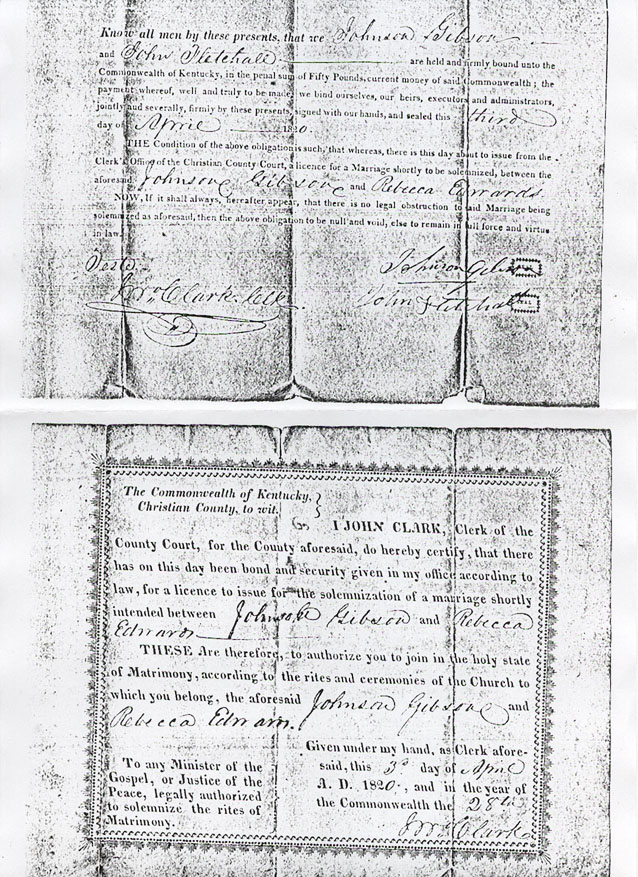 Know all men by these presents, that we Johnson Gibson
and John Fletchall are held and firmly bound unto the
Commonwealth of Kentucky, in the penal sum of Fifty Pounds, current money of said Commonwealth; the
payment whereof, well and truly to be made, we bind ourselves, our heirs, executors and administrators,
jointly and severally, firmly by these presents, signed with our hands, and sealed this third
day of April 1820.
THE Condition of the above obligation is such, that whereas, there is this day about to issue from the
Clerk's Office of the Christian County Court, a licence for a Marriage shortly to be solemnized, between the
aforesaid Johnson Gibson and Rebecca Edwards
NOW, If it shall always, hereafter appear, that there is no legal obstruction to said Marriage being
solemnized as aforesaid, then the above obligation to be null and void, else to remain in full force and virtue
in law.
Teste
Jno. Clark Clk
Johnson Gibson
John Fletchall SEAL
The Commonwealth of Kentucky,
Christian County, to wit.
I JOHN CLARK, Clerk of the
County Court, for the County aforesaid, do hereby certify, that there
has on this day been bond and security given in my office according to
law, for a licence to issue for the solemnization of a marriage shortly
intended between Johnson Gibson and Rebecca
Edwards
THESE Are therefore, to authorize you to join in the holy state
of Matrimony, according to the rites and ceremonies of the Church to
which you belong, the aforesaid Johnson Gibson and
Rebecca Edwards.
To any Minister of the
Gospel, or Justice of the
Peace, legally authorized
to solemnize the rites of
Matrimony.
Given under my hand, as Clerk afore-
said, this 3d day of April
A. D. 1820, and in the year of
the Commonwealth the 28th
Jno Clark